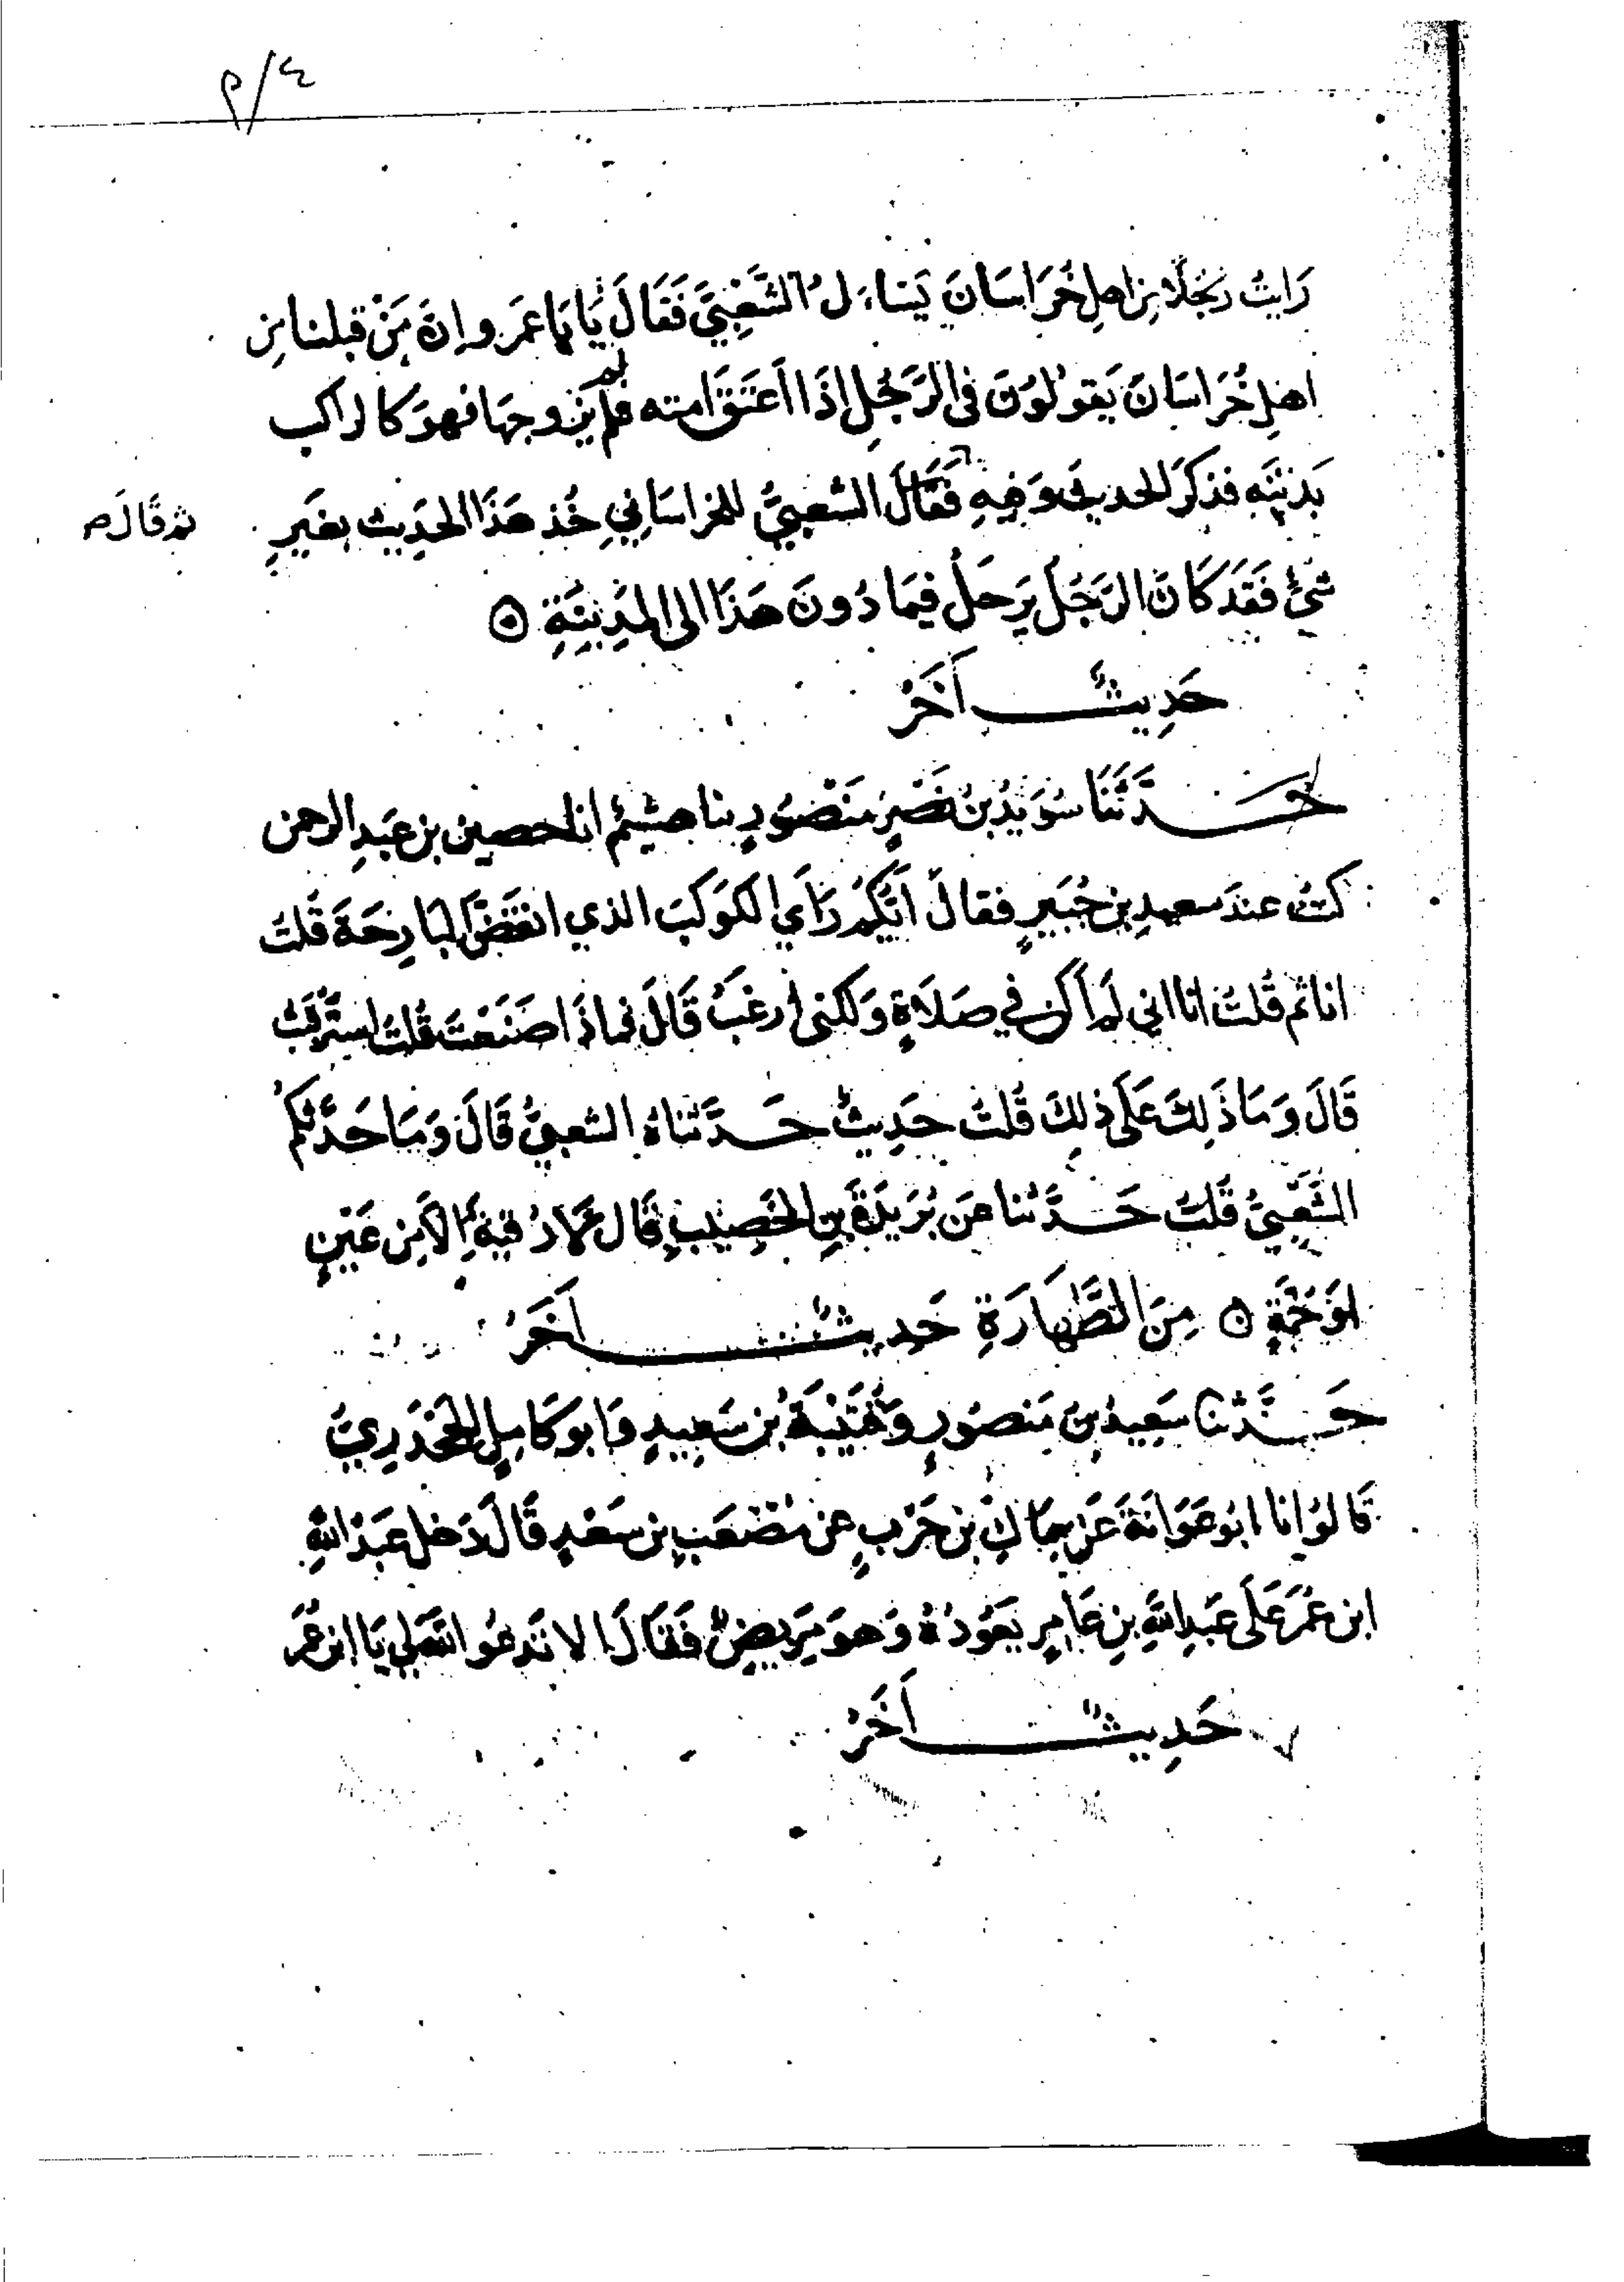 ٤/٩
رَايتُ رَجُلًا مِن اهلِ خُرَاسَانَ يَسَاءَلُ الشَّعْبِيَّ فَقَالَ يَا بَا عَمَرو اِنَّ مَنْ قبلنا مِن
اهلِ خُرَاسَانَ يَقولُونَ فى الرَّجُلِ اذَا اعَتَقَ امته ثم يَزوجهَا فهوَ كالراكب
بَدَنَتَهِ فذكرَ الحديث وَفيهِ فَقَالَ الشعبيُّ للخراسَانيِ خُذ هَذَا الحَدِيث بغَيرِ
ثم قَالَ صح
شيءٍ فَقَد كَانَ الرَجُلُ يَرحَلُ فيمَا دُونَ هَذَا الى المَدِينَةِ ۞
حَدِيثٌ آخَرُ
حَدَّثَنَا سُوَيدُ بنُ نَصْرٍ مَنْصُورٍ بنا هشيمٌ انا حصين بن عَبدِ الرحمن
كنتُ عندَ سعيدِ بنِ جُبَيرٍ فقالَ اَيُّكُم رَاَى الكوَكبَ الذي انقَضَّ البَارِحَةَ قُلتُ
انا ثم قُلتُ انا انى لَم اَكن في صَلَاةٍ وَلكنى لدغتُ قَالَ فماذَا صَنَعْتَ قُلتُ استرقيتُ
قَالَ وَمَا ذَلِكَ عَلَى ذلِكَ قُلتُ حَدِيثٌ حَدَّثناهُ الشعبيُّ قَالَ وَمَا حَدَّثكُم
الشَّعْبيُّ قُلتُ حَدَّثنا عَن بُرَيدَةَ بنِ الحُصَيبِ قال لا رُقيةَ اِلا مِن عَيْنٍ
اوَ حُمَةٍ ۞ مِنَ الطَّهَارَةِ حَدِيثٌ آخَرُ
حَدَّثنا سَعِيدُ بنُ مَنصُورٍ وَقُتَيْبَةُ بنُ سَعِيدٍ وَابو كَامِلٍ الجَحْدَرِيُّ
قَالوُا نا ابوُ عَوَانَةَ عَن سِمَاكِ بنِ حَرْبٍ عن مُصْعَبِ بنِ سَعْدٍ قَالَ دَخل عَبدُ اللهِ
ابن عُمَرَ عَلَى عَبدِ اللهِ بنِ عَامِرٍ يَعُودُهُ وَهوَ مَرِيضٌ فَقَالَ الا تَدعُو اللهَ لي يَا ابن عُمَرَ
حَدِيثٌ آخَرُ